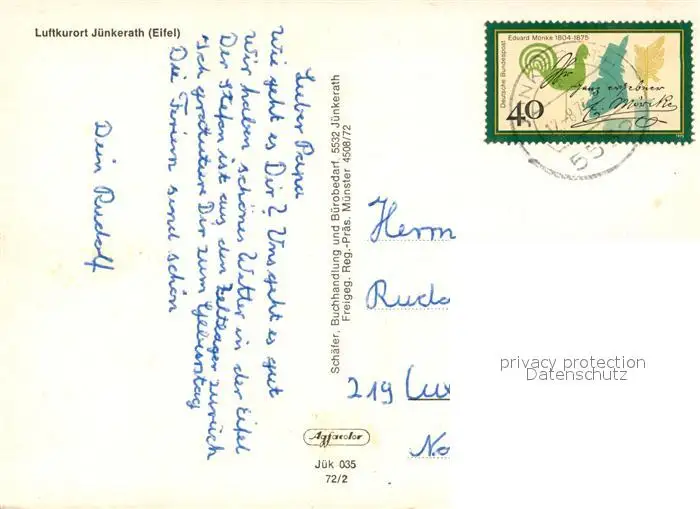 Luftkurort Jünkerath (Eifel)
Lieber Papa
Wie geht es Dir? Uns geht es gut
Wir haben schönes Wetter in der Eifel
Der Stefan ist aus den Zeltlager zurück
Ich gratuliere Dir zum Geburtstag
Die Ferien sind schön
Dein Rudolf
Schäfer, Buchhandlung und Bürobedarf, 5532 Jünkerath
Freigeg. Reg.-Präs. Münster 4508/72
Agfacolor
Jük 035
72/2
Deutsche Bundespost
Eduard Mörike 1804-1875
ganz ergebner
E. Mörike
40
Herrn
Rudo
219 Cux
No
privacy protection
Datenschutz